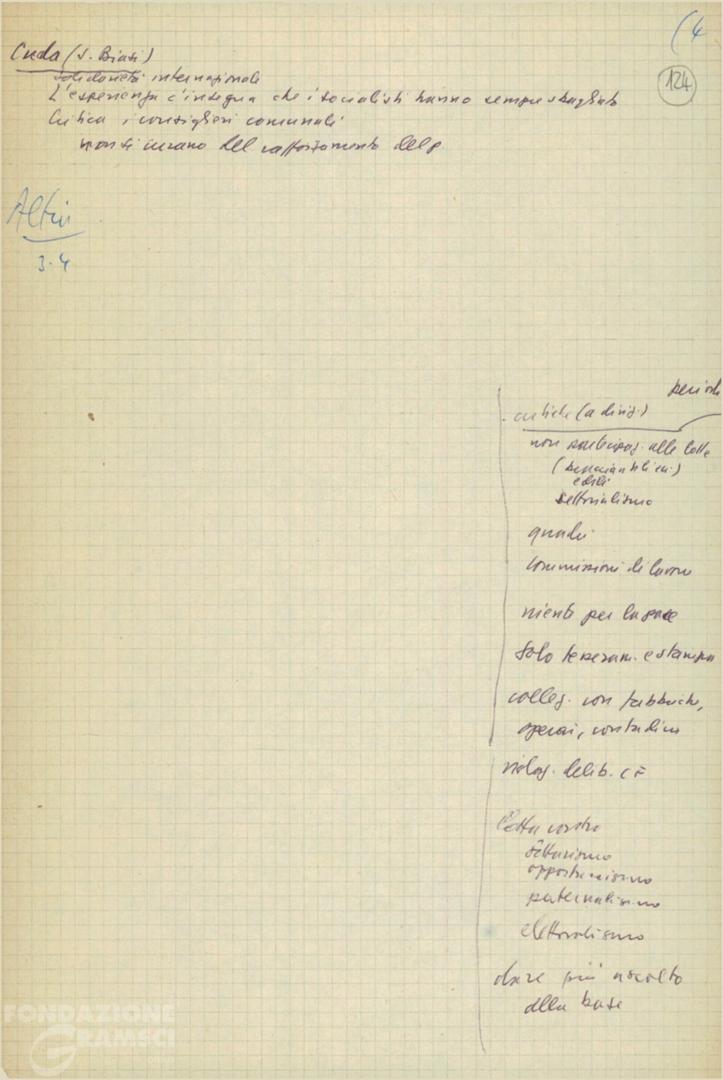 (4
124
Cuda (S. Biasi)
solidarietà internazionale
L'esperienza c'insegna che i socialisti hanno sempre sbagliato
Critica i consiglieri comunali
non si curano del rafforzamento del p.
Altri
3-4
critiche (a dirig.)
non partecipaz. alle lotte
edili
settorialismo
quadri
commissioni di lavoro
niente per la pace
solo tesseram. e stampa
colleg. con fabbriche,
operai, contadini
violaz. delib. CF
Lotta contro
settarismo
opportunismo
paternalismo
elettoralismo
dare più ascolto
alla base
FONDAZIONE
GRAMSCI